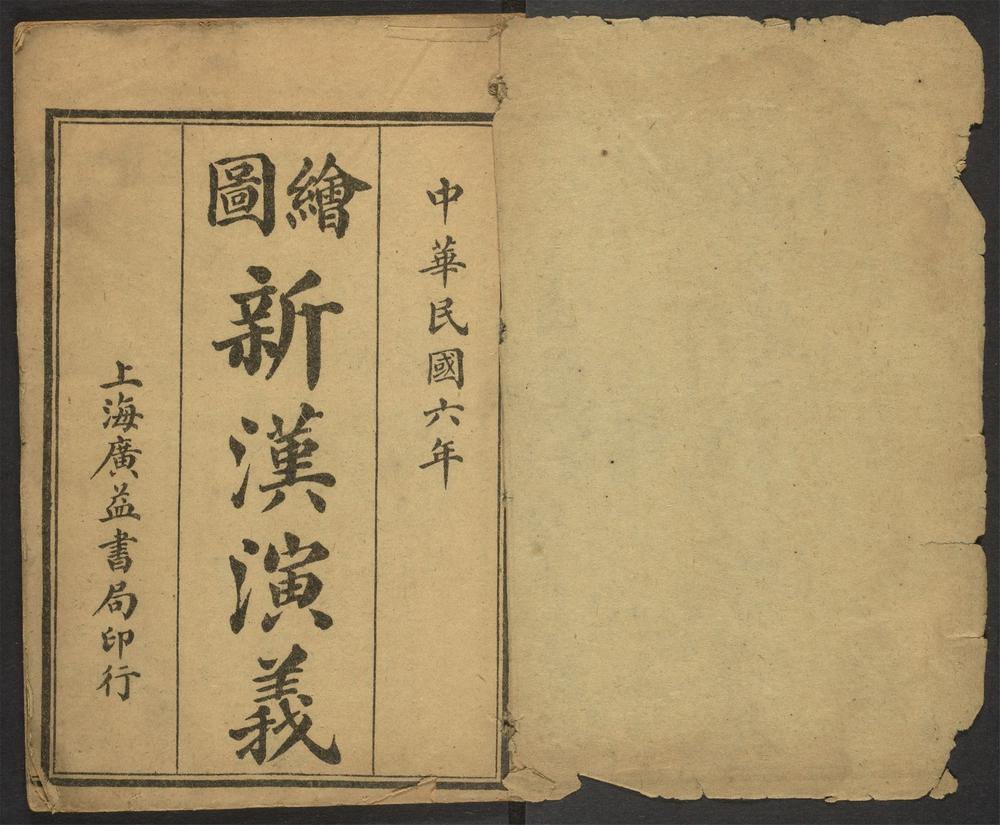 中華民國六年
繪圖
新漢演義
上海廣益書局印行